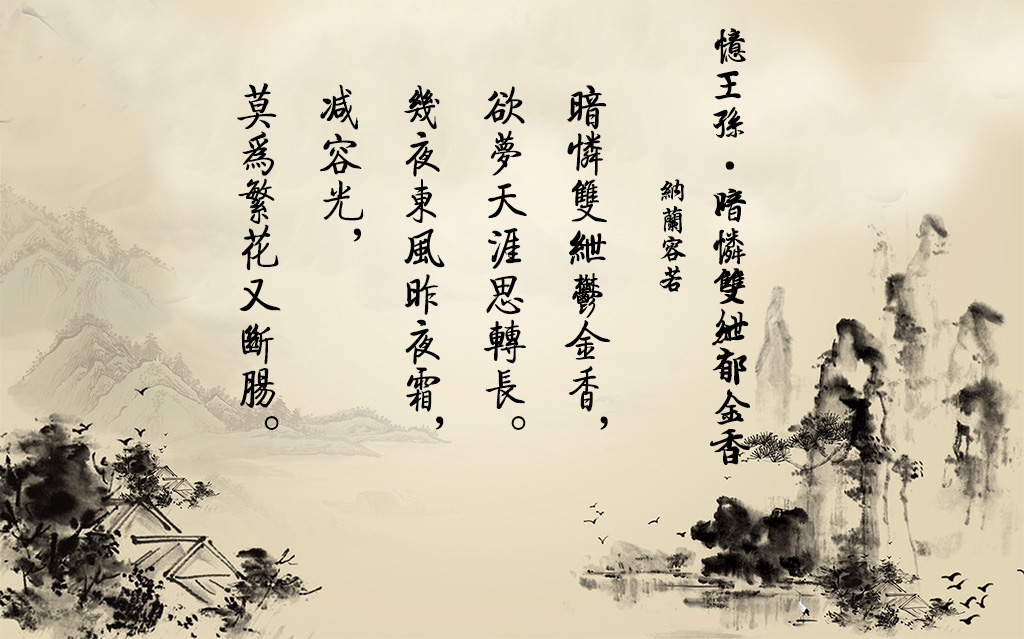 憶王孫·暗憐雙紲郁金香
納蘭容若
暗憐雙紲鬱金香，
欲夢天涯思轉長。
幾夜東風昨夜霜，
减容光，
莫爲繁花又斷腸。